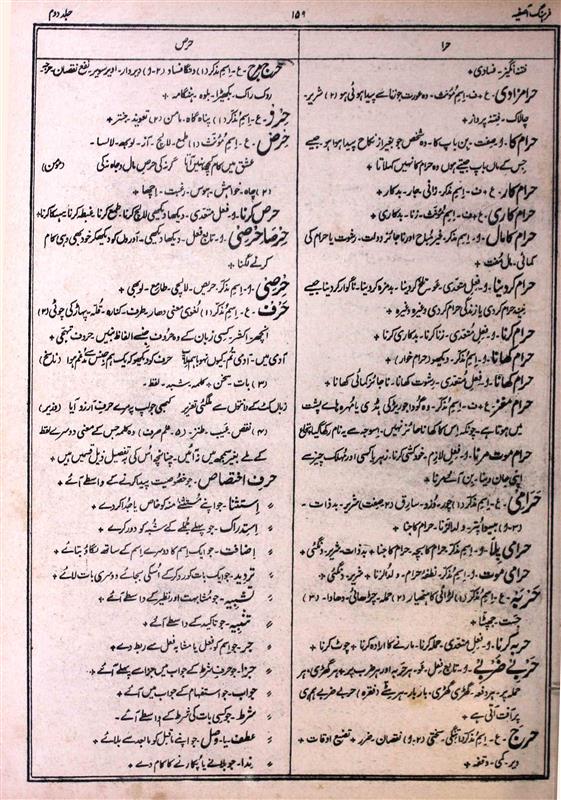 فرہنگ آصفیہ
۱۵۹
جلد دوم
حرا
حرص
فتنہ انگیز۔ فسادی +
حرامزادی۔ ع + ف۔ اسم مؤنث۔ وہ عورت جو زنا سے پیدا ہوئی ہو (۲) شریر۔
چالاک۔ فتنہ پرداز +
حرام کا۔ و۔ صفت۔ بن باپ کا۔ وہ شخص جو بغیر از نکاح پیدا ہوا ہو جیسے
جس کے ماں باپ جیتے ہوں وہ حرام کا نہیں کہلاتا +
حرام کار۔ ع + ف۔ اسم مذکر۔ زانی۔ جار۔ بدکار +
حرام کاری۔ ع + ف۔ اسم مؤنث۔ زنا۔ بدکاری +
حرام کا مال۔ و۔ اسم مذکر۔ غیر مباح اور ناجائز دولت۔ رشوت یا حرام کی
کمائی۔ مال مفت +
حرام کر دینا۔ و۔ فعل متعدی۔ تلخ کر دینا۔ بے مزہ کر دینا۔ ناگوار کر دینا جیسے
نیند حرام کر دی یا زندگی حرام کر دی وغیرہ وغیرہ +
حرام کرنا۔ و۔ فعل متعدی۔ زنا کرنا۔ بدکاری کرنا +
حرام کھانا۔ و۔ اسم مذکر۔ دیکھو (حرام خوار) +
حرام کھانا۔ و۔ فعل متعدی۔ رشوت کھانا۔ ناجائز کمائی کھانا +
حرام مغز۔ ع + ف۔ اسم مذکر۔ وہ گودا جو ریڑ کی ہڈی یا مہرہ ہائے پشت
میں ہوتا ہے۔ چونکہ اس کا کھانا جائز نہیں۔ اس وجہ سے یہ نام رکھا گیا
حرام موت مرنا۔ و۔ فعل لازم۔ خودکشی کرنا۔ زہر یا کسی اور مہلک چیز سے
اپنی جان دینا۔ بن آئے مرنا +
حرامی۔ ع۔ اسم مذکر (۱) چور۔ دزد۔ سارق (۲ صفت) شریر۔ بدذات۔
ولدالزنا۔ حرام کا جنا +
حرامی پلا۔ و۔ اسم مذکر۔ حرام کا بچہ۔ حرام کا جنا + بدذات۔ شریر۔ دنگئی +
حرامی موت۔ و۔ اسم مذکر۔ نطفۂ حرام۔ ولدالزنا + شریر۔ دنگئی +
حربہ۔ ع۔ اسم مذکر (۱) لڑائی کا ہتھیار (۲) حملہ۔ چڑھائی۔ دھاوا۔ (۳)
جست۔ جھپٹا +
حربہ کرنا۔ و۔ فعل متعدی۔ حملہ کرنا۔ مارنے کا ارادہ کرنا + چوٹ کرنا +
حربے ضربے۔ و۔ تابع فعل۔ ہر حربہ اور ہر ضرب پر + ہر گھڑی۔ ہر
حملہ پر۔ ہر دفعہ۔ گھڑی گھڑی۔ بار بار۔ (فقرہ) حربے ضربے ہمری
پر آفت آتی ہے +
حرج۔ ع۔ اسم مذکر۔ تنگی۔ سختی (۲۔ و) نقصان۔ ضرر + تضیع اوقات +
دیر۔ کمی۔ وقفہ +
حرج مرج۔ ع۔ اسم مذکر (۱) دنگا فساد (۲۔ و) دیر دار۔ اویر سویر۔ نفع نقصان۔
روک راک۔ بکھیڑا۔ بلوہ۔ ہنگامہ +
حرز۔ ع۔ اسم مذکر (۱) پناہ گاہ۔ مامن (۲) تعویذ۔ جنتر +
حرص۔ ع۔ اسم مؤنث (۱) طمع۔ لالچ۔ آز۔ لوبھ۔ لالسا۔
عشق میں کام کچھ نہیں آتا گر نہ کی حرص مال و جاہ نہ کی (مومن)
(۲) چاہ۔ خواہش۔ ہوس۔ رغبت۔ اچھا +
حرص کرنا۔ و۔ فعل متعدی۔ دیکھا دیکھی لالچ کرنا۔ طمع کرنا۔ غبطہ کرنا۔
حرصا حرصی۔ و۔ تابع فعل۔ دیکھا دیکھی۔ اوروں کو دیکھ کر خود بھی وہی کام
کرنے لگنا +
حرصی۔ و۔ اسم مذکر۔ حریص۔ لالچی۔ طامع۔ لوبھی +
حرف۔ ع۔ اسم مذکر (۱) لغوی معنی دھار۔ طرف۔ کنارہ۔ قلہ۔ پہاڑ کی چوٹی (۲)
انچھر۔ اکشر۔ کسی زبان کے وہ حروف جنسے الفاظ بنیں۔ حروف تہجی +
(ناسخ)
(۳) بات۔ سخن + کلمہ۔ شبد۔ لفظ۔
کبھی جواب پر میرے حرفِ آرزو آیا (وزیر)
(۴) نقص۔ عیب۔ طنز۔ (۵۔ علم صرف) وہ کلمہ جس کے معنی دوسرے لفظ
کے ملے بغیر سمجھ میں نہ آئیں۔ چنانچہ اس کی تفصیل ذیل میں ہے +
حرف اختصاص۔ جو خصوصیت پیدا کرنے کے واسطے آئے +
〃 استثنا۔ جو اپنے مستثنےٰ منہ کو خاص یا جدا کر دے +
〃 استدراک۔ جو پہلے جملے کے شبہ کو دور کرے +
〃 اضافت۔ جو ایک اسم کا دوسرے اسم کے ساتھ لگاؤ بتائے +
〃 تردید۔ جو ایک بات کو رد کر کے اسکی بجائے دوسری بات لائے +
〃 تشبیہ۔ جو مشابہت اور نظیر کے واسطے آئے +
〃 تنبیہ۔ جو تاکید کے واسطے آئے +
〃 جر۔ جو اسم کو فعل یا مشابہ فعل سے ربط دے +
〃 جزا۔ جو حرف شرط کے جواب میں جزا سے پہلے آئے +
〃 جواب۔ جو استفہام کے جواب میں آئے +
〃 شرط۔ جو کسی بات کی شرط کے واسطے آئے +
〃 عطف یا وصل۔ جو اپنے ماقبل کو مابعد سے ملائے +
〃 ندا۔ جو بلانے یا پکارنے کا کام دے +